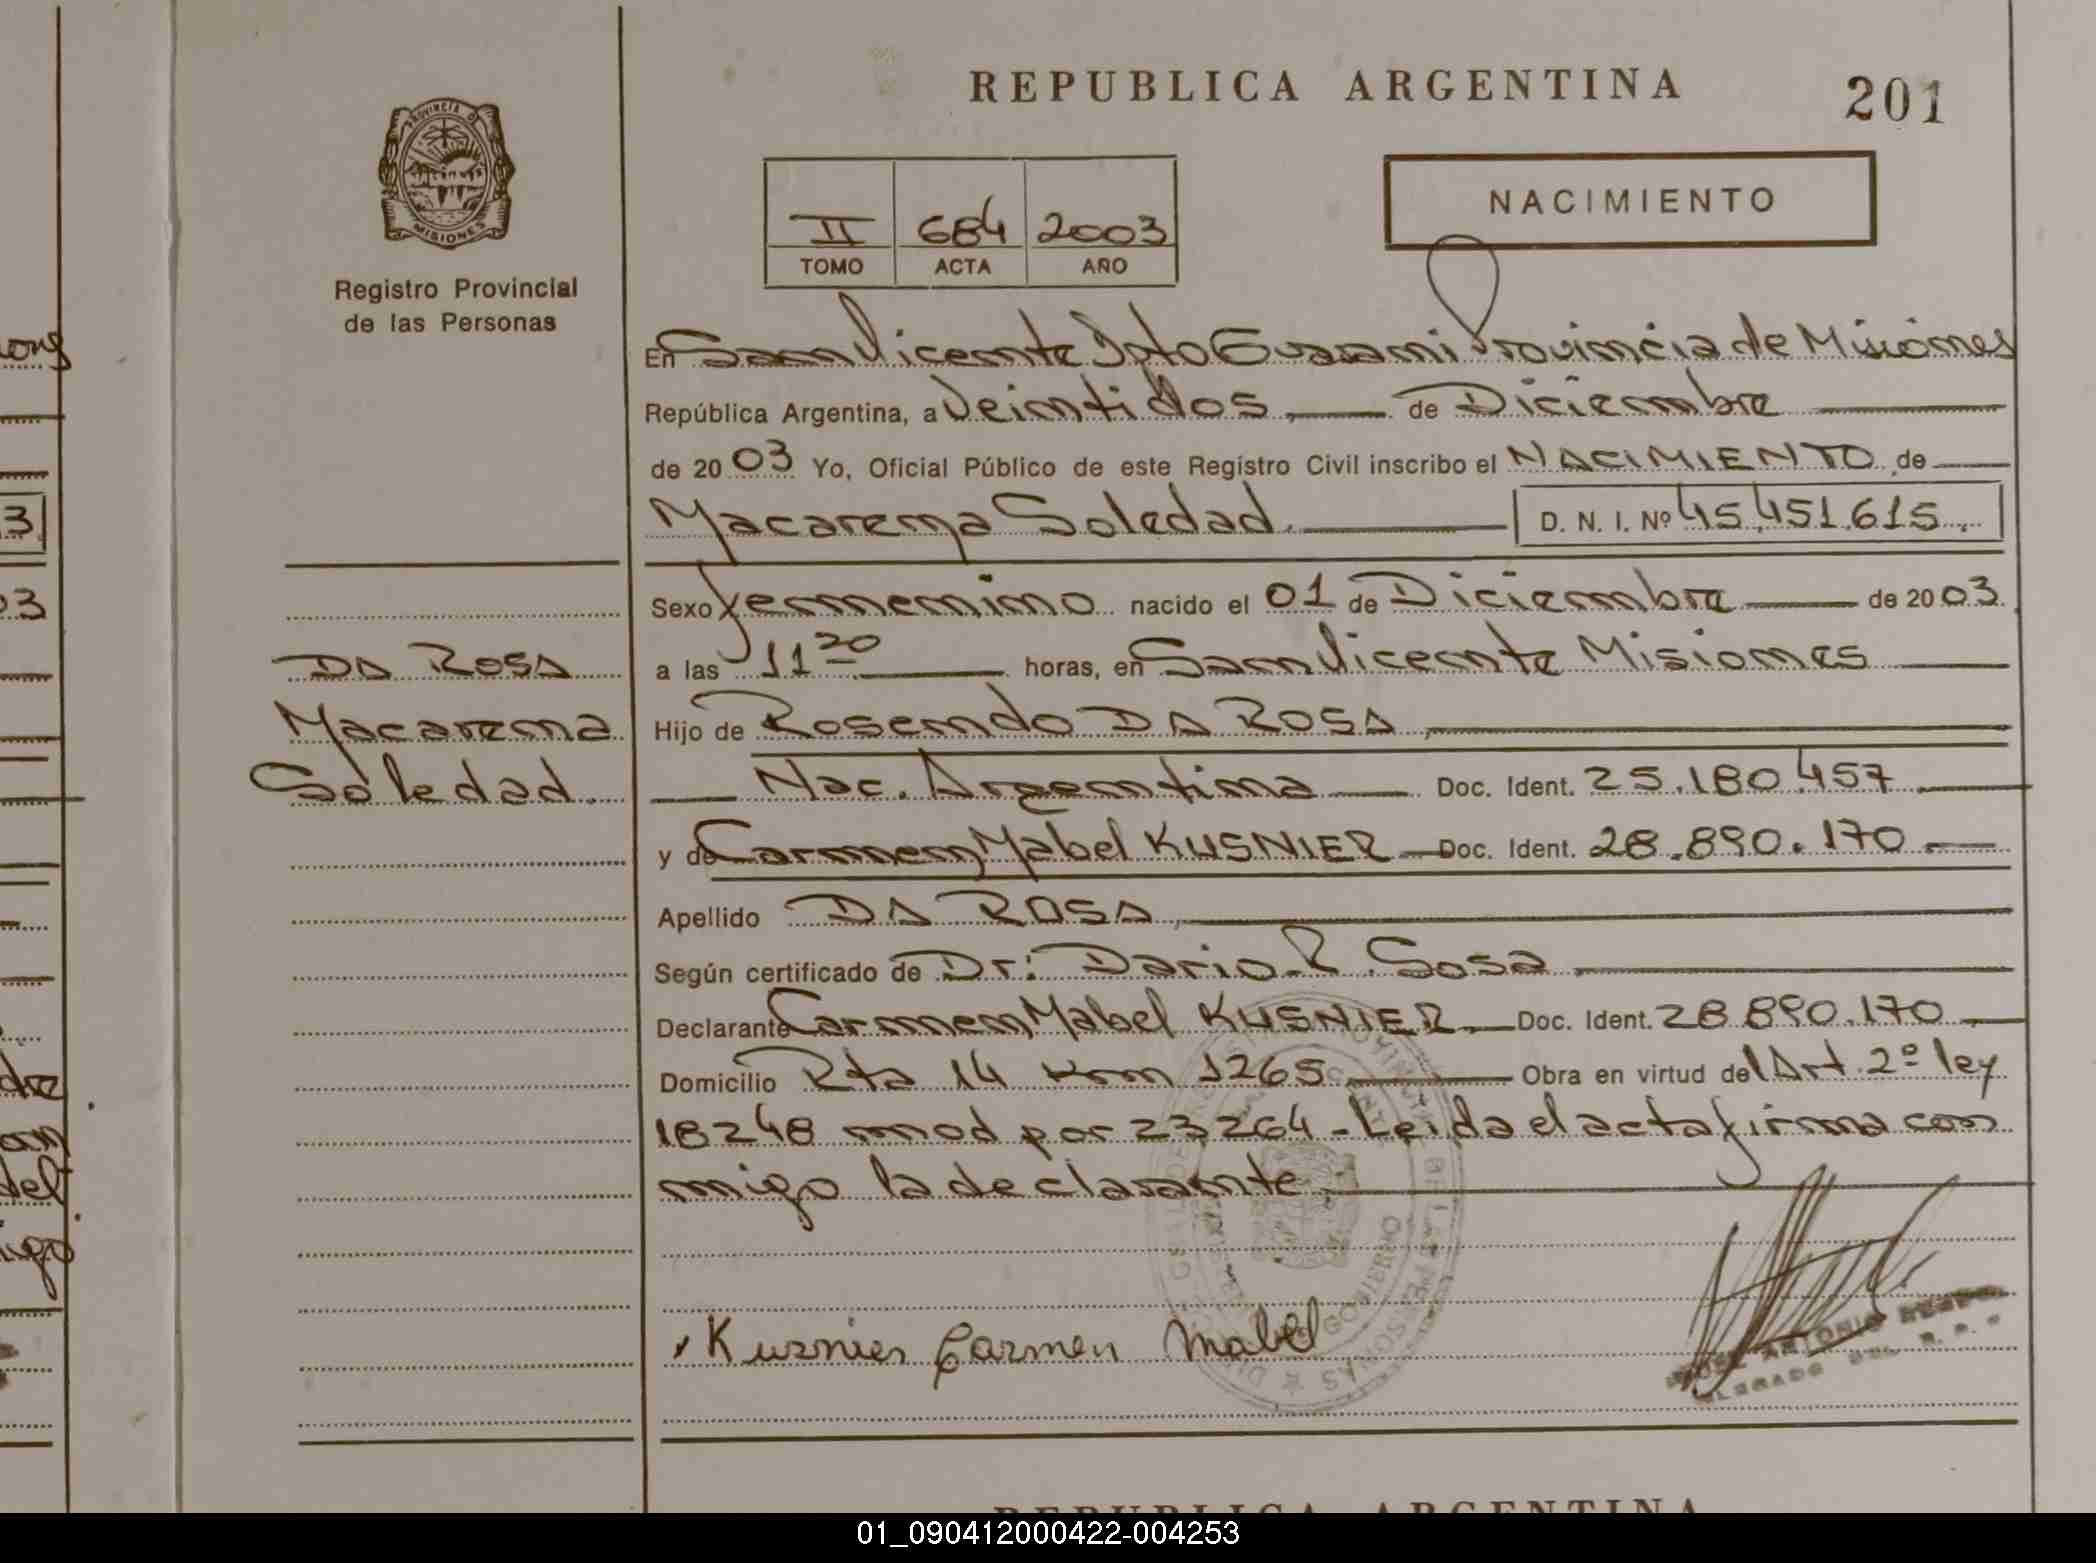 REPUBLICA ARGENTINA
201
PROVINCIA D
MISIONES
Registro Provincial
de las Personas
II 684 2003
TOMO ACTA AÑO
NACIMIENTO
En San Vicente Dpto Guarani Provincia de Misiones
República Argentina, a Veintidos de Diciembre
de 2003 Yo, Oficial Público de este Registro Civil inscribo el NACIMIENTO de
Macarena Soledad. D. N. I. Nº 45.451.615.
Sexo Femenino nacido el 01 de Diciembre de 2003.
a las 11 20 horas, en San Vicente Misiones
Hijo de Rosendo DA ROSA,
Nac. Argentina Doc. Ident. 25.180.457
y de Carmen Mabel KUSNIER Doc. Ident. 28.890.170.
Apellido DA ROSA,
Según certificado de Dr: Dario R. Sosa
Declarante Carmen Mabel KUSNIER. Doc. Ident. 28.890.170
Domicilio Rta 14 Km 1265 Obra en virtud del Art. 2º ley
18248 mod por 23264-Leida el acta firma con
migo la declarante.
DA ROSA
Macarena
Soledad.
Kusnier Carmen Mabel
GOBIERNO
JOSE ANTONIO
REPUBLICA ARGENTINA
01_090412000422-004253